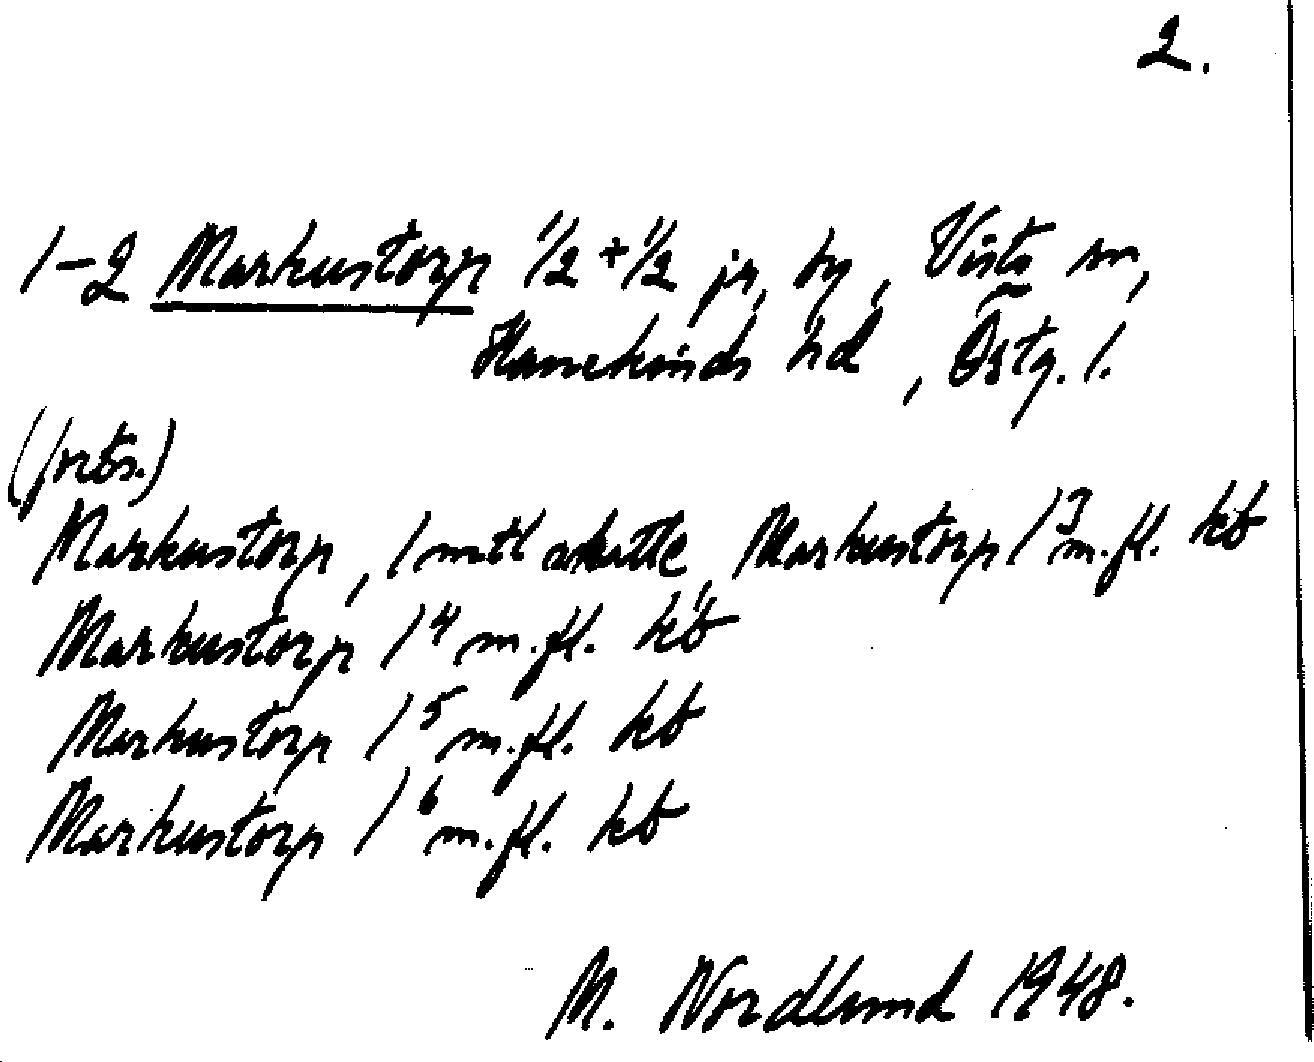 2.
1-2 Markustorp 1/2 + 1/2 jr, by, Vists sn,
Hanekinds hd, Östg. l.
(forts.)
Markustorp, 1 mtl skatte, Markustorp 1³ m.fl. kb
Markustorp 1⁴ m.fl. kb
Markustorp 1⁵ m.fl. kb
Markustorp 1⁶ m.fl. kb
M. Nordlund 1948.